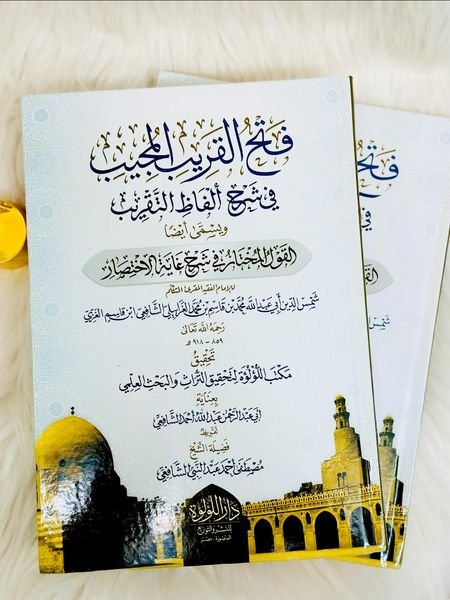 فَتْحُ القَرِيبِ المُجِيبِ
فِي شَرْحِ أَلْفَاظِ التَّقْرِيبِ
وَيُسَمَّى أَيْضًا
القَوْلُ المُخْتَارُ فِي شَرْحِ غَايَةِ الاِخْتِصَارِ
للإمام الفقيه المقرئ المتكلم
شَمْسِ الدِّينِ أَبِي عَبْدِ اللَّهِ مُحَمَّدِ بْنِ قَاسِمِ بْنِ مُحَمَّدٍ الغَرَابِيلِيِّ الشَّافِعِيِّ ابْنِ قَاسِمٍ الغَزِّيِّ
رَحِمَهُ اللَّهُ تَعَالَى
٨٥٩ - ٩١٨ هـ
تَحْقِيقُ
مَكْتَبِ اللُّؤْلُؤَةِ لِتَحْقِيقِ التُّرَاثِ وَالبَحْثِ العِلْمِيِّ
بِعِنَايَةِ
أَبِي عَبْدِ الرَّحْمَنِ عَبْدِ اللَّهِ أَحْمَدَ الشَّافِعِيِّ
تَقْرِيظُ
فَضِيلَةِ الشَّيْخِ
مُصْطَفَى أَحْمَدَ عَبْدِ النَّبِيِّ الشَّافِعِيِّ
دَارُ اللُّؤْلُؤَةِ
للنشر والتوزيع
المنصورة - مصر
فَتْحُ
فِي